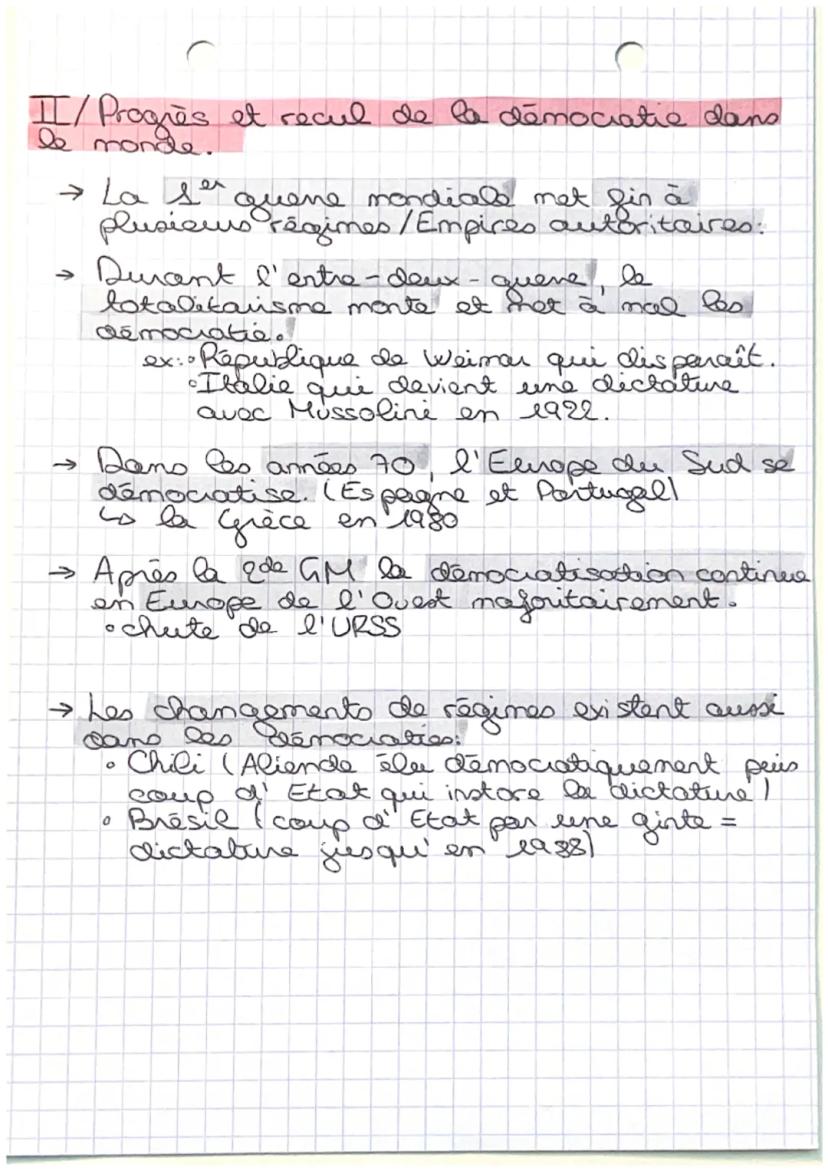 II/ Progrès et recul de la démocratie dans
le monde.
→ La 1er guerre mondiale met fin à
plusieurs régimes/Empires autoritaires.
→ Durant l'entre-deux-guerre, le
totalitarisme monte et met à mal les
démocratie.
ex: • République de Weimar qui disparaît.
• Italie qui devient une dictature
avec Mussolini en 1922.
→ Dans les années 70, l'Europe du Sud se
démocratise. (Espagne et Portugal)
↳ la Grèce en 1980
→ Après la 2de GM la démocratisation continue
en Europe de l'Ouest majoritairement.
• chute de l'URSS
→ Les changements de régimes existent aussi
dans les démocraties:
• Chili (Aliende élu démocratiquement puis
coup d'Etat qui instore la dictature)
• Brésil (coup d'Etat par une ginte =
dictature jusqu'en 1988)